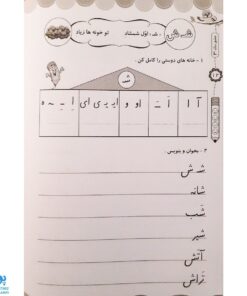 شـ ش
شـ اوّل شستند تو خونه ها زیاد
۱ - خانه های دوستی را کامل کن .
شـ
آ ا اَ ـَ او و ایـ یـ ی ای اِ ـِ ـه ه
۲ - بخوان و بنویس .
شـ ش
شانه
شَب
شیر
آتَش
تَراش